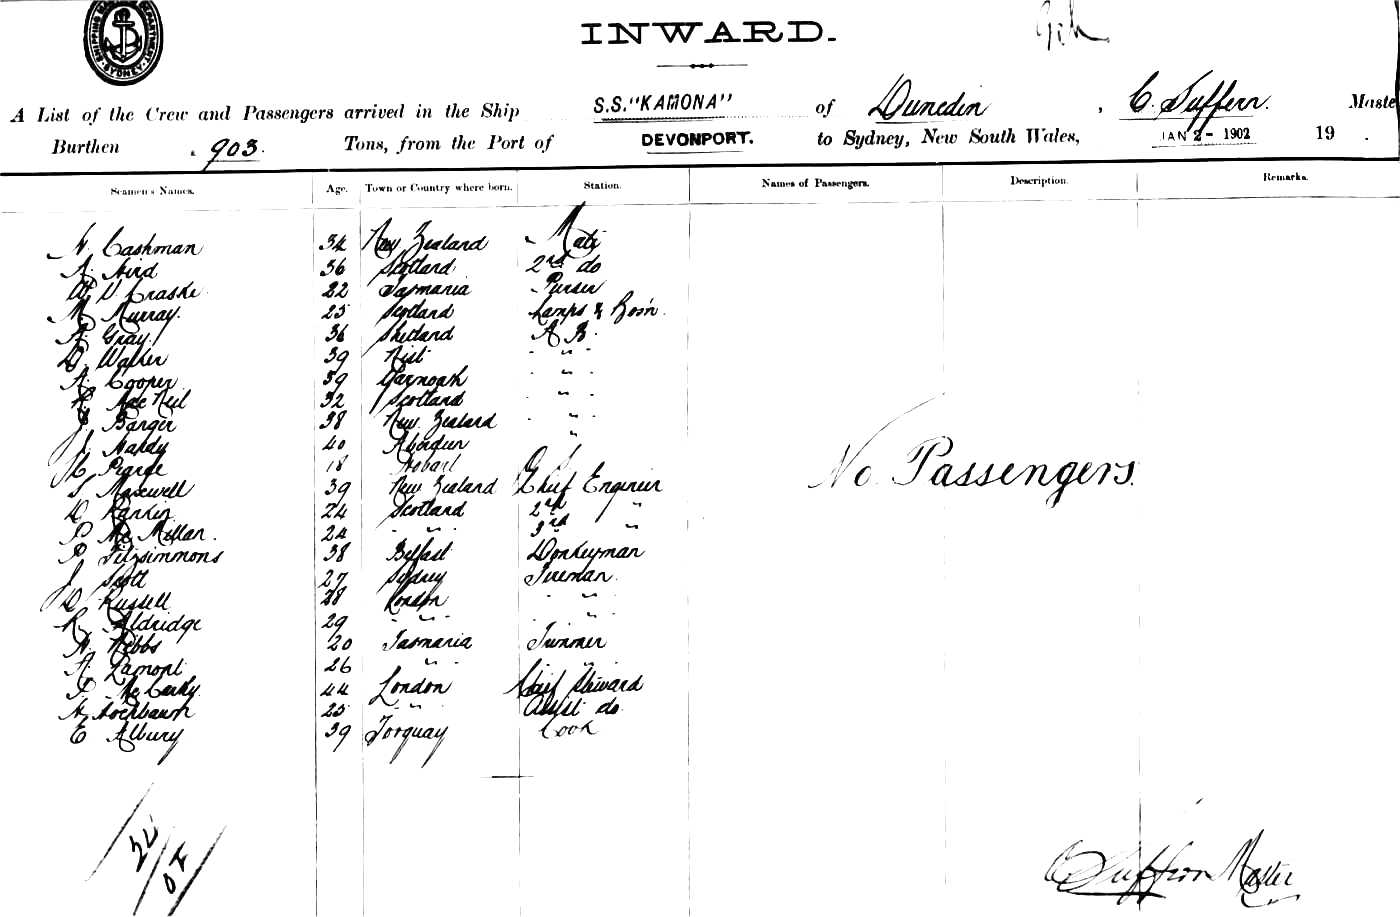 SHIPPING MASTER'S DEPARTMENT. SYDNEY.
INWARD.
A List of the Crew and Passengers arrived in the Ship S.S. "KAMONA" of Dunedin, C. Suffern. Maste
Burthen 903. Tons, from the Port of DEVONPORT. to Sydney, New South Wales, JAN 2- 1902 19 .
Seamen's Names. Age. Town or Country where born. Station. Names of Passengers. Description. Remarks.
Cashman 34 New Zealand Mate
A. Aird 36 Scotland 2nd do
W. D. Craske 22 Tasmania Purser
M. Murray. 25 Scotland Lamps & Bos'n.
A. Gray 36 Shetland A B.
D. Walker 39 " "
A. Cooper 39 " "
Mac Neil 32 Scotland " "
Barger 38 New Zealand " "
J. Hardy 40 Aberdeen "
Pearce 18 Hobart
S. Maxwell 39 New Zealand Chief Engineer
D. Rankin 24 Scotland 2nd "
P. McMillan. 24 " " 3rd "
P. Fitzsimmons 38 Belfast Donkeyman
J. Scott 27 Sydney Fireman.
D. Russell 28 London " "
R. Aldridge 29 " " " "
H. Nebbs 20 Tasmania Trimmer
A. Lamont 26 " "
44 London Chief Steward
25 " " Assist do.
E Albury 39 Torquay Cook
No Passengers.
C Suffern Master